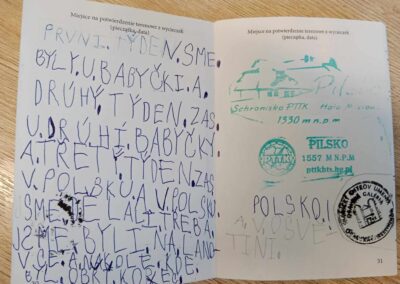 Miejsce na potwierdzenie terenowe z wycieczek
(pieczątka, data)
PRVNI. TÝDEN. SME
BYLY. U. BABYČKI. A.
DRUHÝ. TÝDEN. ZAS
U. DRUHÍ. BABYČKY
A. TŘETÝ. TÝDEN. ZAS
V. POLSKU. A. V. POLSKU
SME. DELALI. TŘEBA.
JSME. BYLI. NA. LANO
BYL. OBR. KOPEC.
Miejsce na potwierdzenie terenowe z wycieczek
(pieczątka, data)
Pilsko
Schronisko PTTK Hala
1330 m n.p.m
PTTK
PILSKO
1557 M N.P.M
pttkbts.hg.pl
POLSKO!
A. V. OBVE
TINI.
31